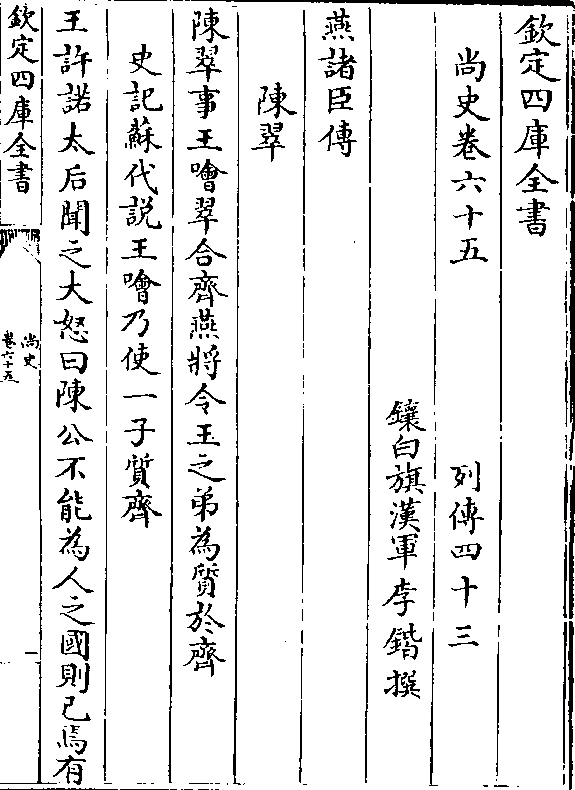 欽定四庫全書
尚史卷六十五
列傳四十三
鑲白旗漢軍李鍇撰
燕諸臣傳
陳翠
陳翠事王噲翠合齊燕將令王之弟為質於齊
史記蘇代説王噲乃使一子質齊
王許諾太后聞之大怒曰陳公不能為人之國則已焉有
欽定四庫全書
尚史
卷六十五
一